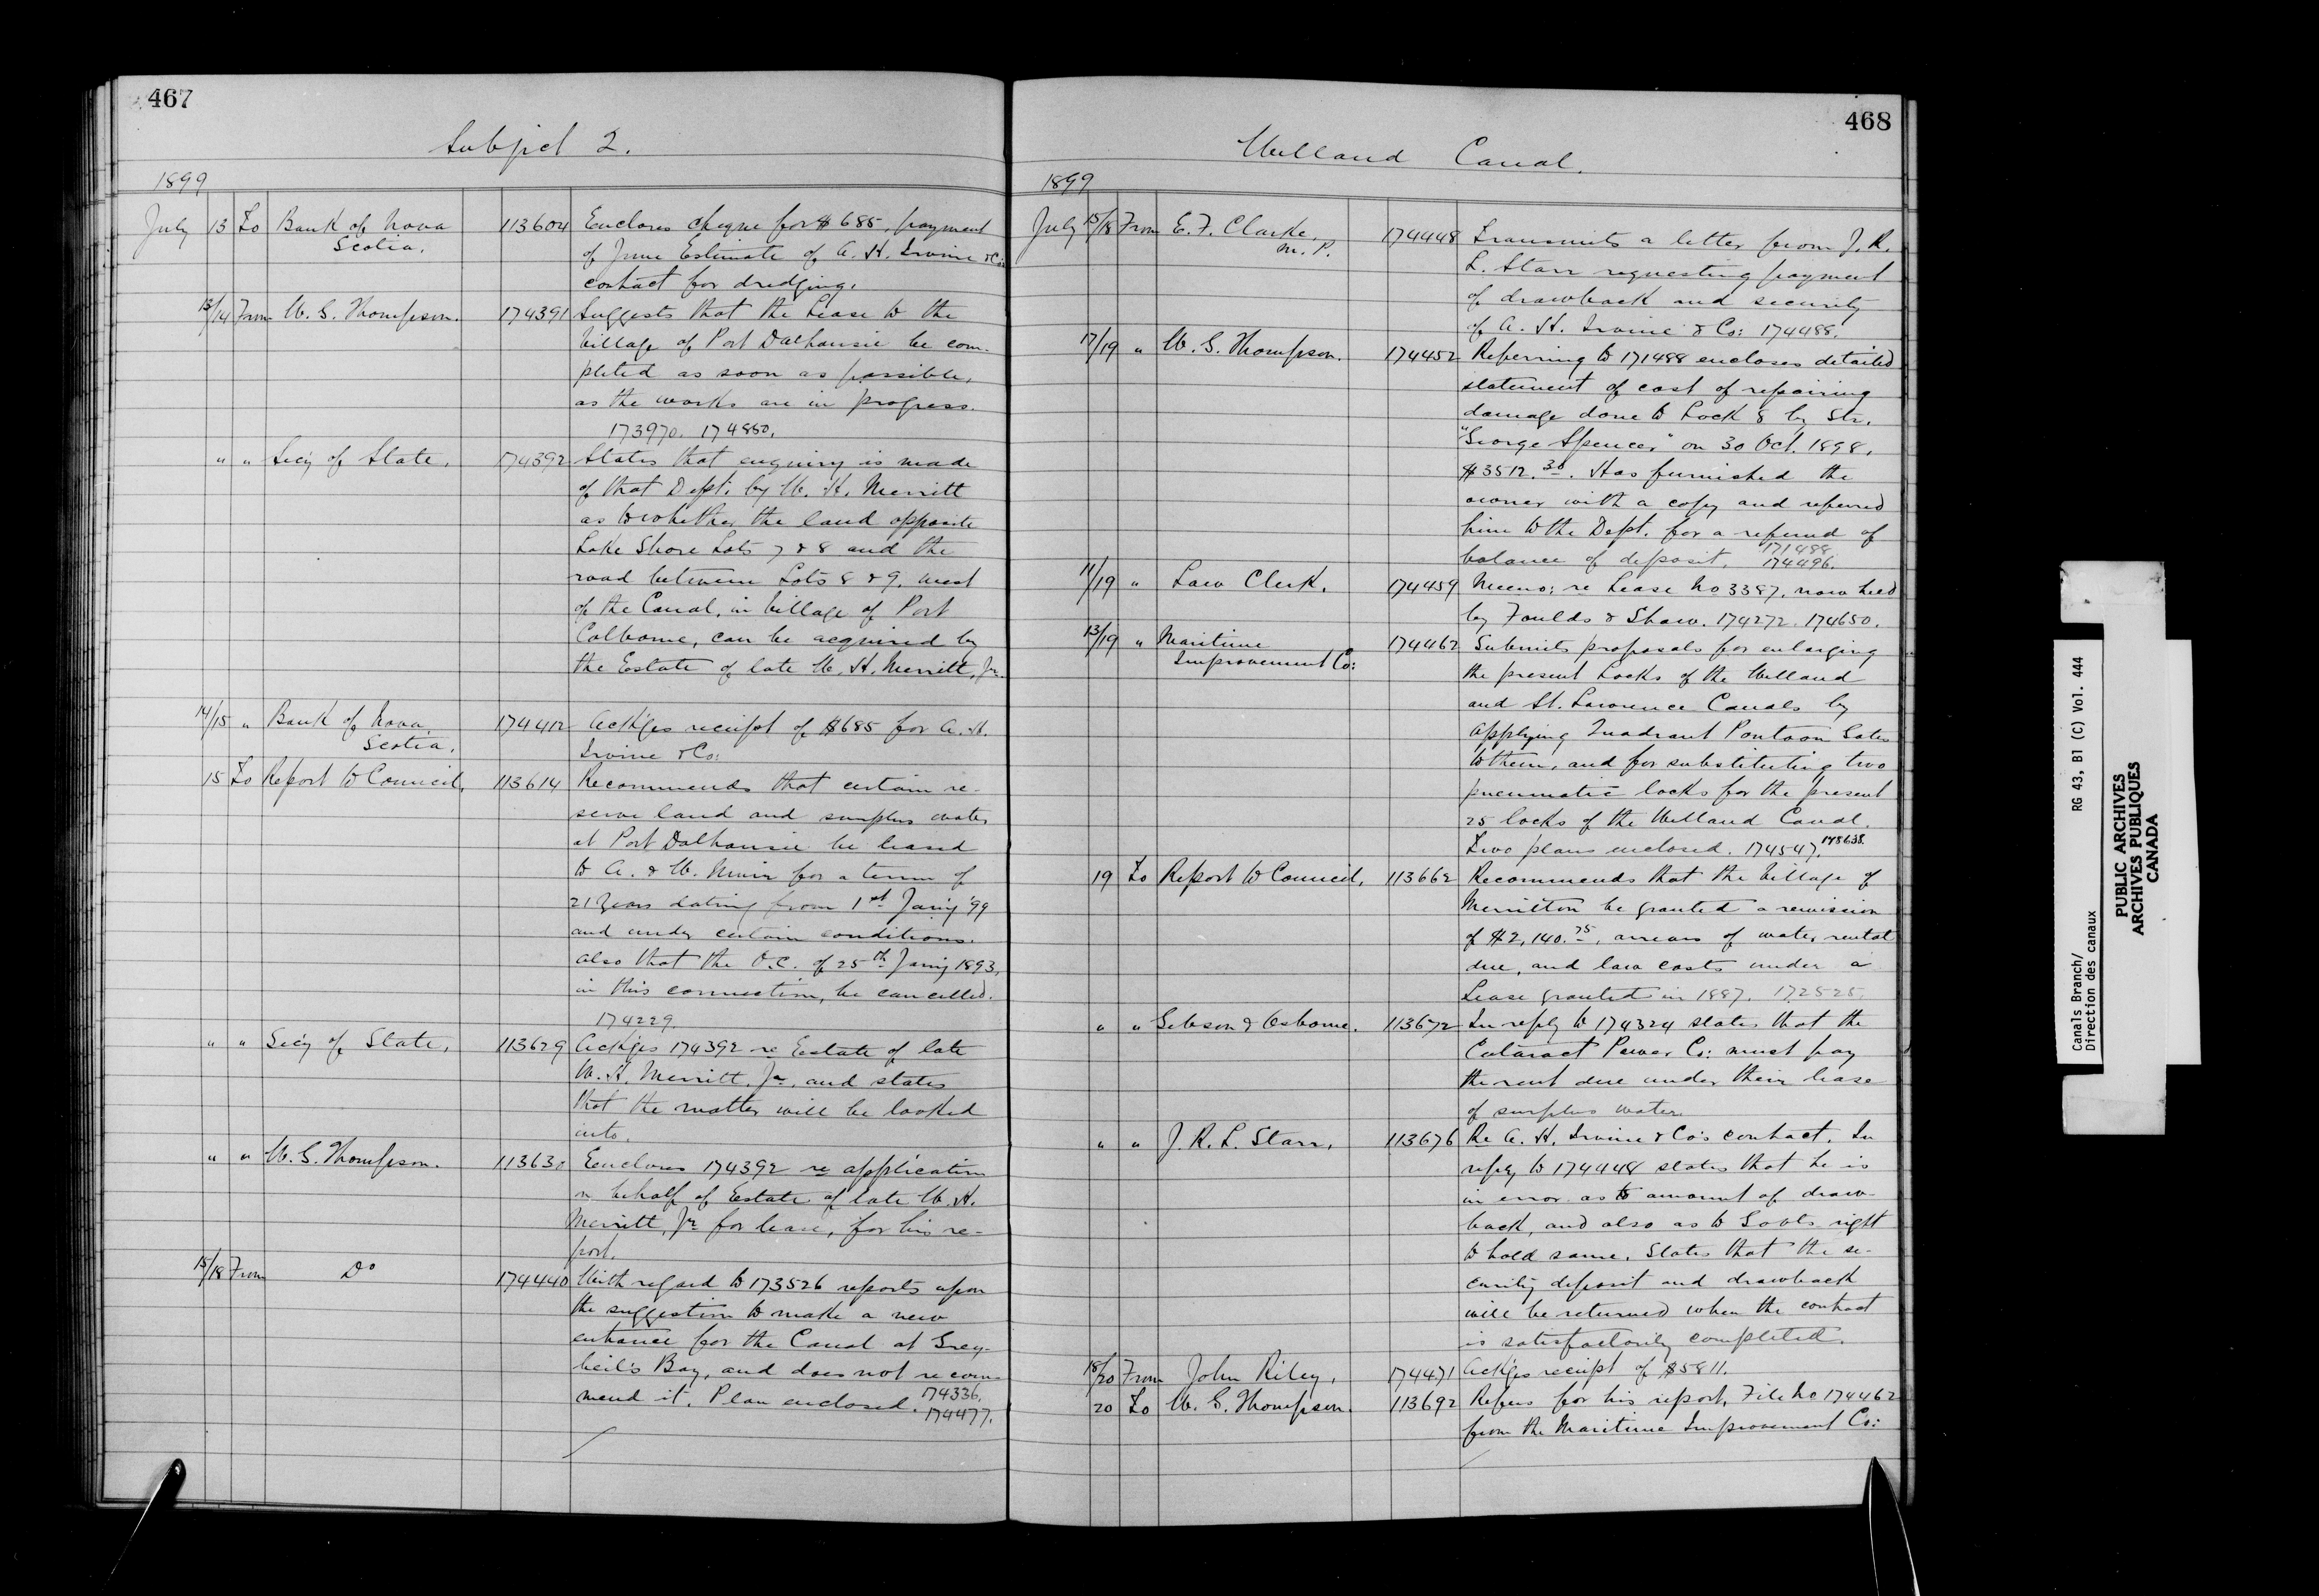 467
Subject 2.
1899
July 13 To Bank of Nova Scotia. 113604 Encloses cheque for $685, payment
of June Estimate of A. H. Irvine & Co's
contract for dredging.
13/14 From W. G. Thompson. 174391 Suggests that the Lease to the
Village of Port Dalhousie be com-
pleted as soon as possible,
as the works are in progress.
173970. 174880.
" " Sec'y of State, 174392 States that enquiry is made
of that Dept. by W. H. Merritt
as to whether the land opposite
Lake Shore Lots 7 & 8 and the
road between Lots 8 & 9, west
of the Canal, in Village of Port
Colborne, can be acquired by
the Estate of late W. H. Merritt, Jr.
14/15 " Bank of Nova Scotia. 174412 Ack'ges receipt of $685 for A. H.
Irvine & Co:
15 To Report to Council, 113614 Recommends that certain re-
serve land and surplus water
at Port Dalhousie be leased
to A. & W. Muir for a term of
21 Years dating from 1st Jan'y '99
and under certain conditions.
Also that the O.C. of 25th Jan'y 1893,
in this connection, be cancelled.
174229.
" " Sec'y of State, 113629 Ack'ges 174392 re Estate of late
W. H. Merritt, Jr. and states
that the matter will be looked
into.
" " W. G. Thompson. 113630 Encloses 174392 re application
on behalf of Estate of late W. H.
Merritt, Jr for lease, for his re-
port.
15/18 From Do 174440 With regard to 173526 reports upon
the suggestion to make a new
entrance for the Canal at Grey-
beil's Bay, and does not recom-
mend it. Plan enclosed. 174336.
174477.
468
Welland Canal.
1899
July 15/18 From E. F. Clarke, M.P. 174448 Transmits a letter from J. R.
L. Starr requesting payment
of drawback and security
of A. H. Irvine & Co: 174488.
17/19 " W. G. Thompson. 174452 Referring to 171488 encloses detailed
statement of cost of repairing
damage done to Lock 8 by Str.
"George Spencer," on 30 Oct. 1898,
$3512.30. Has furnished the
owner with a copy and referred
him to the Dept. for a refund of
balance of deposit. 171488
174496.
11/19 " Law Clerk. 174459 Memo: re Lease No 3387, now held
by Foulds & Shaw. 174272. 174650.
13/19 " Maritime Improvement Co: 174462 Submits proposals for enlarging
the present Locks of the Welland
and St. Lawrence Canals by
applying Quadrant Pontoon Gates
to them, and for substituting two
pneumatic locks for the present
25 locks of the Welland Canal.
Two plans enclosed. 174547. 178638.
19 To Report to Council, 113662 Recommends that the Village of
Merritton be granted a remission
of $2,140.75, arrears of water rental
due, and law costs under a
Lease granted in 1887. 172525.
" " Gibson & Osborne. 113672 In reply to 174324 states that the
Cataract Power Co: must pay
the rent due under their lease
of surplus water.
" " J. R. L. Starr, 113676 Re A. H. Irvine & Co's contract. In
reply to 174448 states that he is
in error as to amount of draw-
back, and also as to Govt's right
to hold same. States that the se-
curity deposit and drawback
will be returned when the contract
is satisfactorily completed.
18/20 From John Riley, 174471 Ack'ges receipt of $5811.
20 To W. G. Thompson. 113692 Refers for his report, File No 174462
from the Maritime Improvement Co:
Canals Branch/ RG 43, B1 (C) Vol. 444
Direction des canaux
PUBLIC ARCHIVES
ARCHIVES PUBLIQUES
CANADA